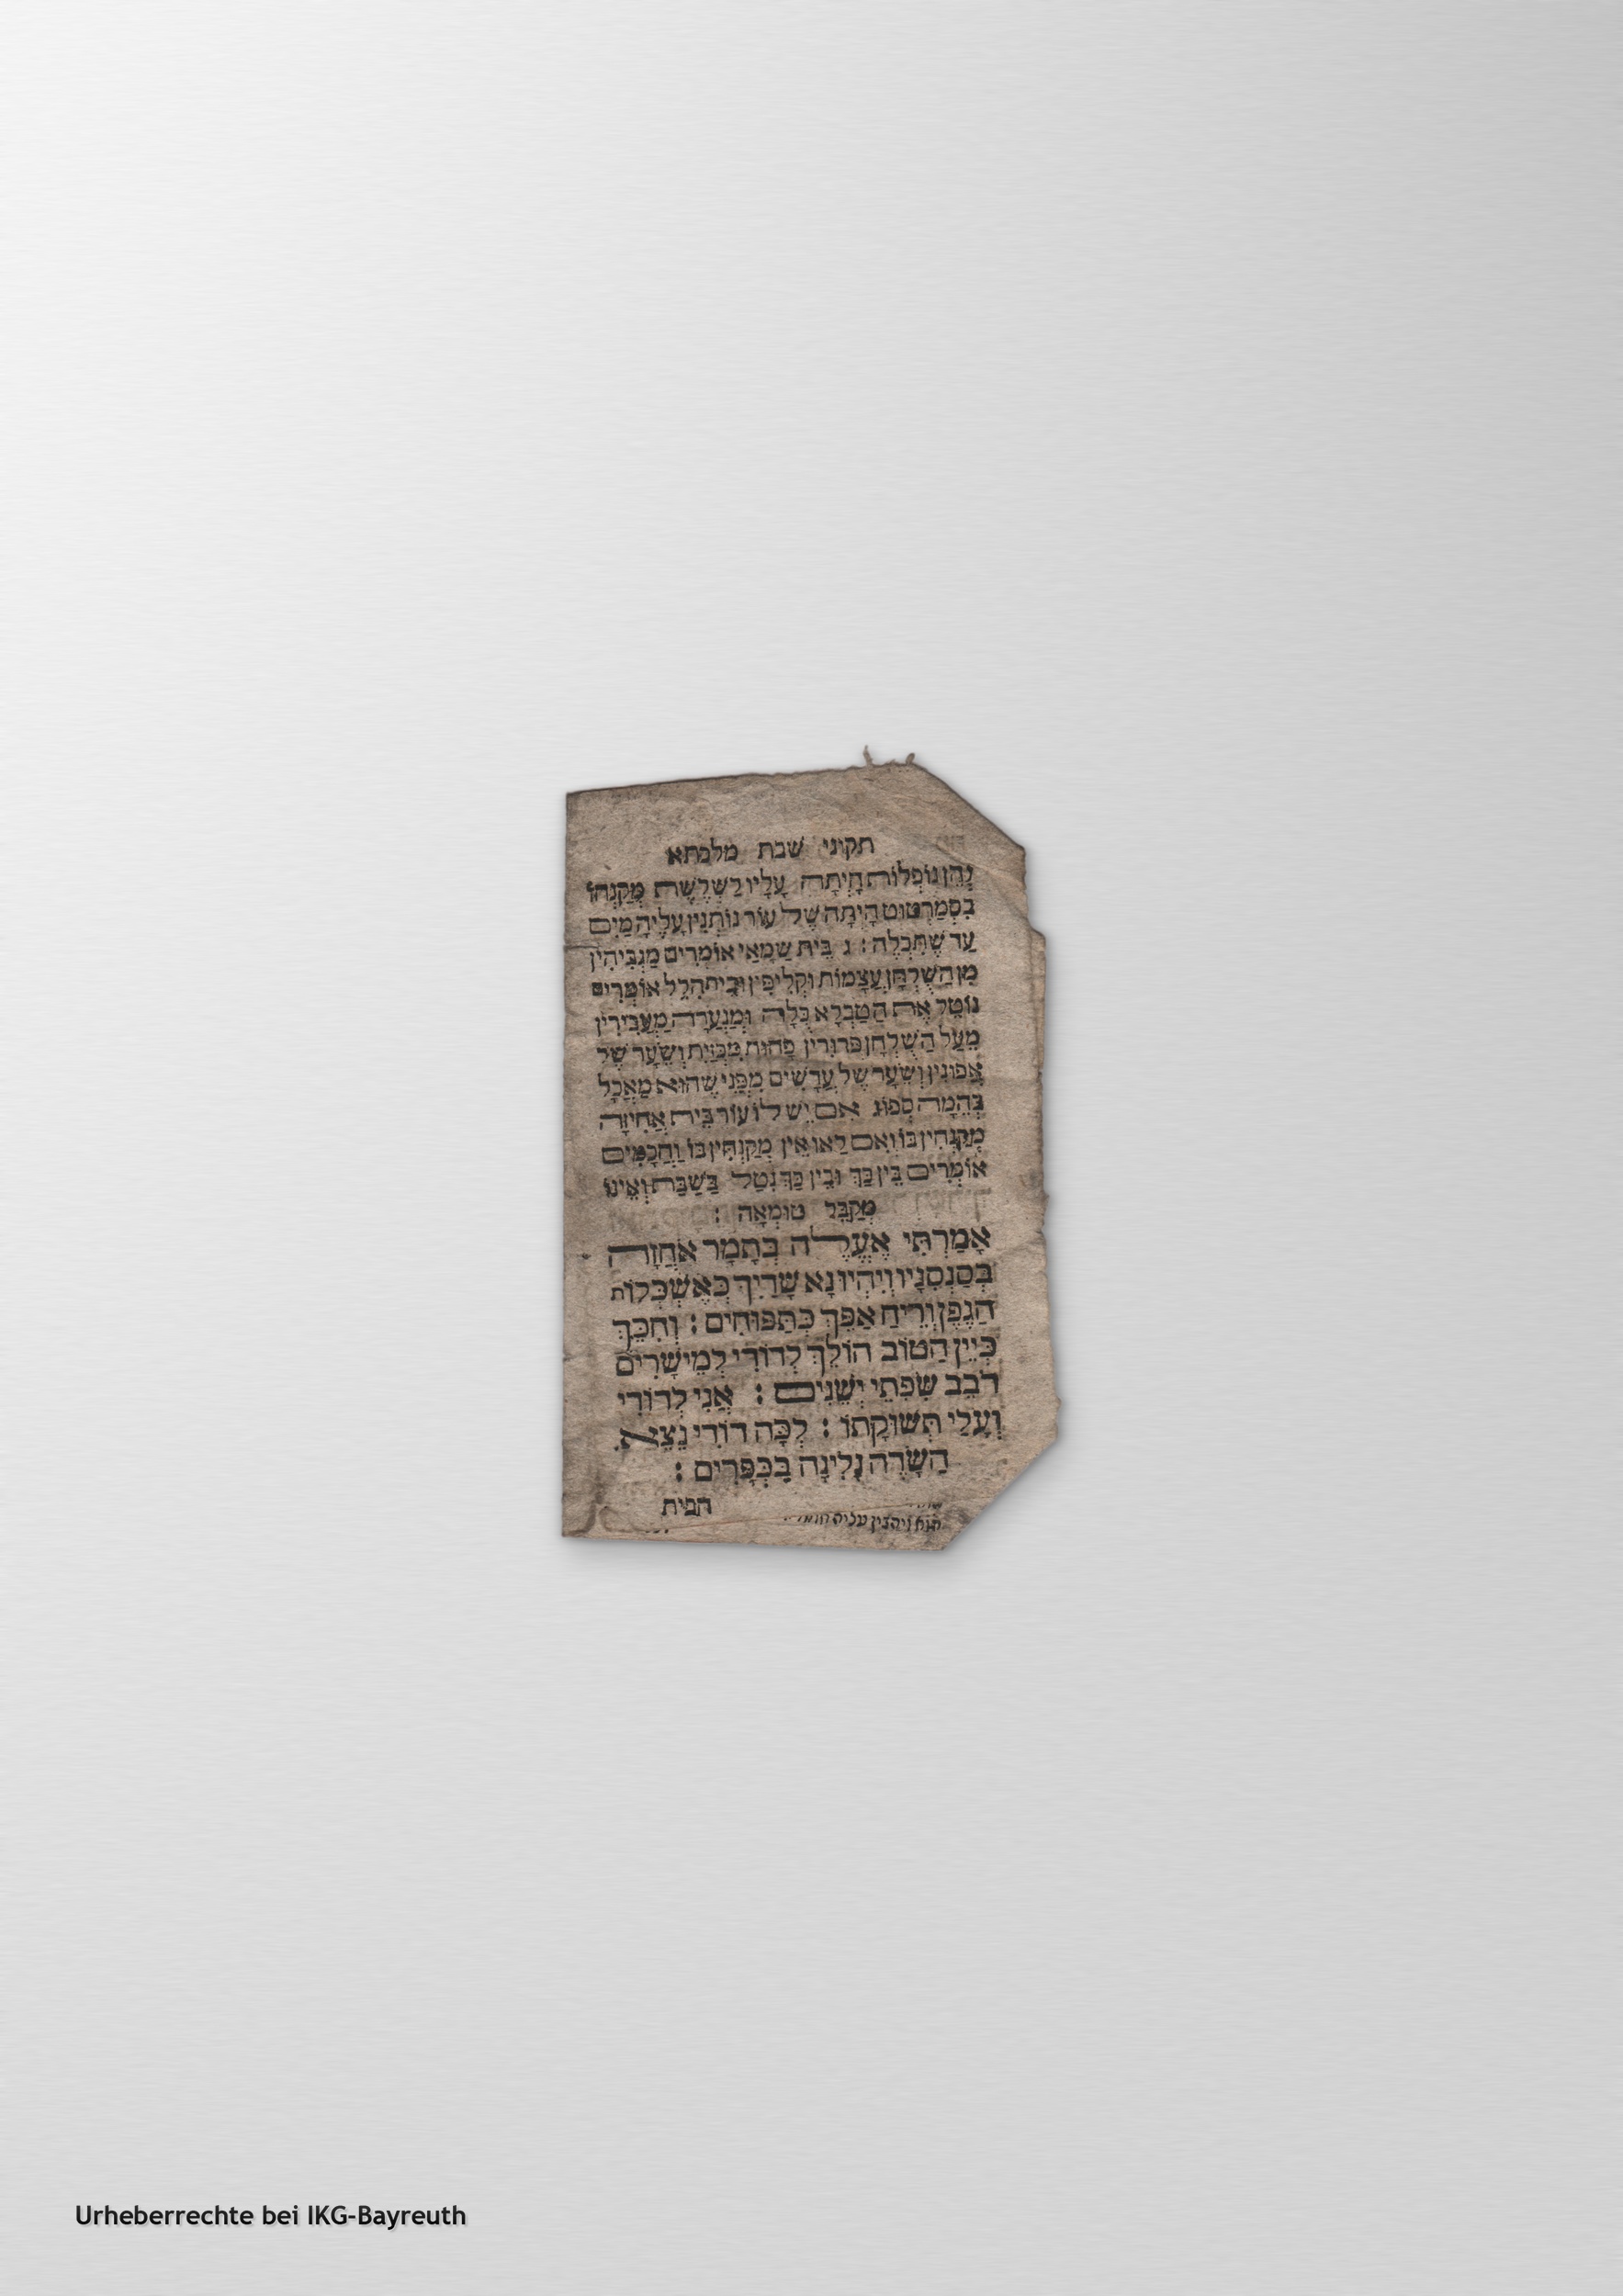 תקוני שבת מלכתא
וְהֵן נוֹפְלוֹת חָיְתָה עָלָיו לַשְׁלֶשֶׁת מְקַנְּחוֹ
בִּסְמַרְטוּט הָיְתָה שֶׁל עוֹר נוֹתְנִין עָלֶיהָ מַיִם
עַד שֶׁתִּכְלֶה : ג בֵּית שַׁמַּאי אוֹמְרִים מַגְבִּיהִין
מִן הַשֻּׁלְחָן עֲצָמוֹת וּקְלִיפִּין וּבֵית הִלֵּל אוֹמְרִים
נוֹטֵל אֶת הַטַּבְלָא כֻּלָּהּ וּמְנַעֲרָהּ מַעֲבִירִין
מֵעַל הַשֻּׁלְחָן פֵּרוּרִין פָּחוֹת מִכְּזַיִת וְשֵׂעָר שֶׁל
אֲפוּנִין וְשֵׂעָר שֶׁל עֲדָשִׁים מִפְּנֵי שֶׁהוּא מַאֲכָל
בְּהֵמָה סְפוֹג אִם יֵשׁ לוֹ עוֹר בֵּית אֲחִיזָה
מְקַנְּחִין בּוֹ וְאִם לַאו אֵין מְקַנְּחִין בּוֹ וַחֲכָמִים
אוֹמְרִים בֵּין כַּךְ וּבֵין כַּךְ נִטָּל בַּשַּׁבָּת וְאֵינוֹ
מְקַבֵּל טוּמְאָה :
אָמַרְתִּי אֶעֱלֶה בְתָמָר אֹחֲזָה
בְּסַנְסִנָּיו וְיִהְיוּ נָא שָׁדַיִךְ כְּאֶשְׁכְּלוֹת
הַגֶּפֶן וְרֵיחַ אַפֵּךְ כַּתַּפּוּחִים : וְחִכֵּךְ
כְּיֵין הַטּוֹב הוֹלֵךְ לְדוֹדִי לְמֵישָׁרִים
דֹּבֵב שִׂפְתֵי יְשֵׁנִים : אֲנִי לְדוֹדִי
וְעָלַי תְּשׁוּקָתוֹ : לְכָה דוֹדִי נֵצֵא
הַשָּׂדֶה נָלִינָה בַּכְּפָרִים :
עליה
Urheberrechte bei IKG-Bayreuth